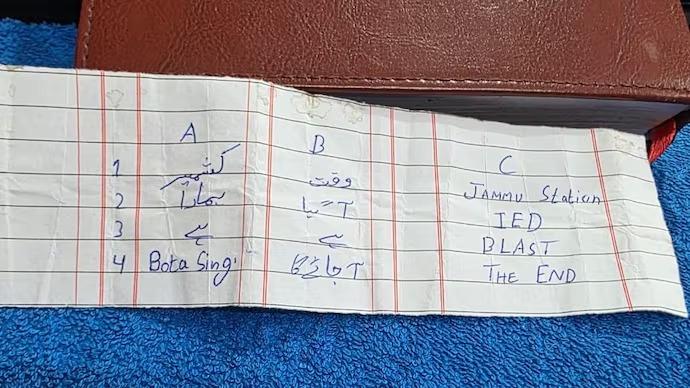 A B C
1 کشمیر وقت JAMMU Station
2 ہمارا آ گیا IED
3 ہے ہے BLAST
4 Bota Sing THE END